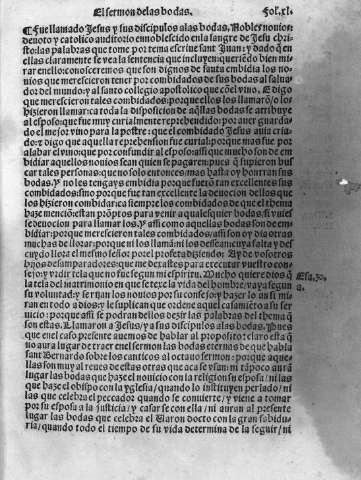 El sermon delas bodas. Fol. xl.
¶ Fue llamado Jesus y sus discipulos alas bodas. Nobles nouios:
deuoto y catolico auditorio ennoblescido en la sangre de Jesu chri-
sto: las palabras que tome por tema escriue sant Juan: y dado q̃ en
ellas claramente se vea la sentencia que incluyen: queriẽdo bien mi-
rar enello: conoceremos que son dignos de sancta embidia los no-
uios que merescieron tener por combidados de sus bodas al salua-
dor del mundo: y al santo collegio apostolico que cõel vino. E digo
que merescieron tales combidados: porque ellos los llamarõ/ o los
hizieron llamar: ca toda la disposicion de aq̃llas bodas se atribuye
al esposo: que fue muy curialmente reprehendido: por auer guarda-
do el mejor vino para la postre: que el combidado Jesus auia cria-
do: E digo que aquella reprehension fue curial: porque mas fue por
alabar el vino: que por confundir al esposo: assi que mucho son de em-
bidiar aquellos nouios sean quien se pagaren: pues q̃ supieron bus-
car tales personas: que no solo entonces: mas hasta oy honrran sus
bodas. Y no les tengays embidia porque fuerõ tan excellentes sus
combidados: sino porque fue tan excellente la deuocion dellos que
los hizieron combidar: ca siempre los combidados de que el thema
haze menciõ: estan prõptos para venir a qualesquier bodas: si vuiesse
deuocion para llamarlos. Y assi como aquellas bodas son de em-
bidiar: porque merescieron tales combidados: assi son oy dia otras
muchas de llorar: porque ni los llamã: ni los dessean: cuya falta y des-
cuydo llora el mesmo señor por el propheta diziendo: Ay de vosotros
hijos desamparadores que me dexastes para executar vuestro con-
sejo: y vrdir tela que no fue segun mi espiritu. Mucho quiere dios q̃
la tela del matrimonio en que se texe la vida del hombre/ vaya segun
su voluntad: y se vrdan los nouios por su consejo: y hazerlo assi si mi-
ran en todo a dios: y le suplican que ordene aquel casamiẽto a su ser-
uicio: porque assi se podran dellos dezir las palabras del thema q̃
son estas. Llamaron a Jesus/ y a sus discipulos alas bodas. Pues
que en el caso presente auemos de hablar al proposito: claro esta q̃
no aura lugar de traer en el sermon las bodas eternas de que habla
sant Bernardo sobre los canticos al octauo sermon: porque aque-
llas son muy al reues de estas otras que aca se vsan: ni tãpoco aura
lugar las bodas que haze el nouicio con la religion su esposa/ ni las
que haze el obispo con la yglesia/ quando lo instituyen perlado/ ni
las que celebra el peccador quando se conuierte/ y viene a tomar
por esposa a la justicia/ y casarse con ella/ ni auran al presente
lugar las bodas que celebra el Varon docto con la gran sabidu-
ria/ quando todo el tiempo de su vida determina de la seguir/ ni
Esa. 30.
a.